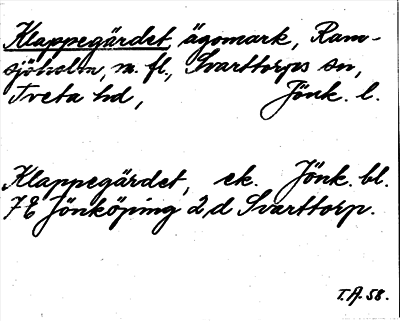 Klappegärdet ägomark, Ram-
sjöholm, m. fl., Svarttorps sn,
Tveta hd, Jönk. l.
Klappegärdet, ek. Jönk. bl.
7E Jönköping 2d Svarttorp.
T.A. 58.